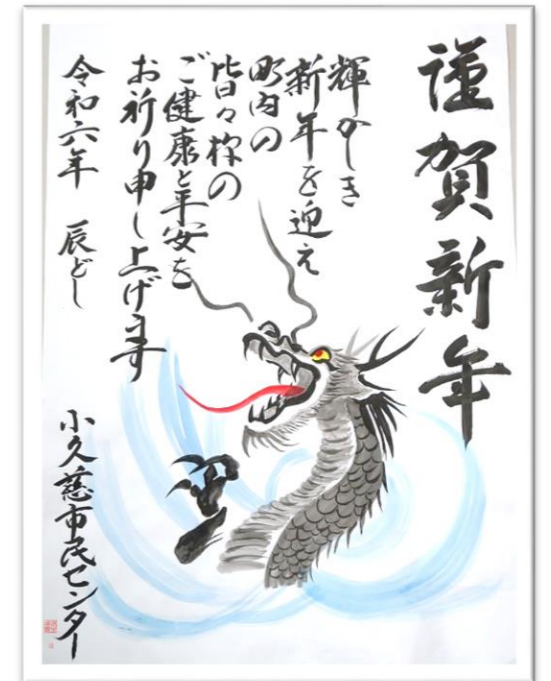 謹賀新年
輝かしき
新年を迎え
町内の
皆々様の
ご健康と平安を
お祈り申し上げます
令和六年 辰どし
小久慈市民センター